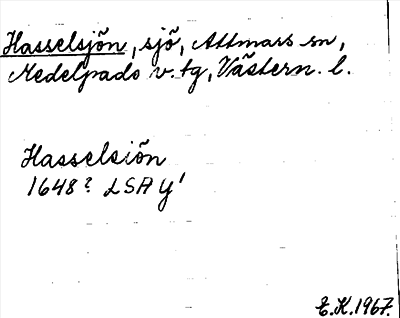 Hasselsjön, sjö, Attmars sn,
Medelpads v. tg, Västern. l.
Hasselsiön
1648? LSA Y¹
E.H. 1967.